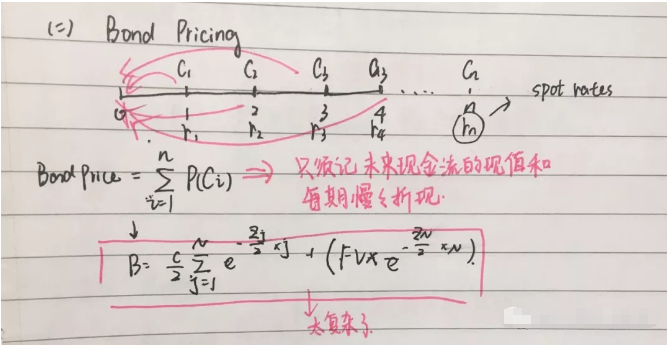 (二) Bond Pricing
C₁ C₂ C₃ C₁₃ .... Cₙ
0 1 2 3 4 n → spot rates
r₁ r₂ r₃ r₄ rₙ
Bond Price = Σⁿᵢ₌₁ P(Cᵢ) ⇒ 只须记未来现金流的现值和
每期慢慢折现.
↓
B = c/2 Σᴺⱼ₌₁ e^(-zj/2 × j) + (FV × e^(-zN/2 × N)).
↓
太复杂了